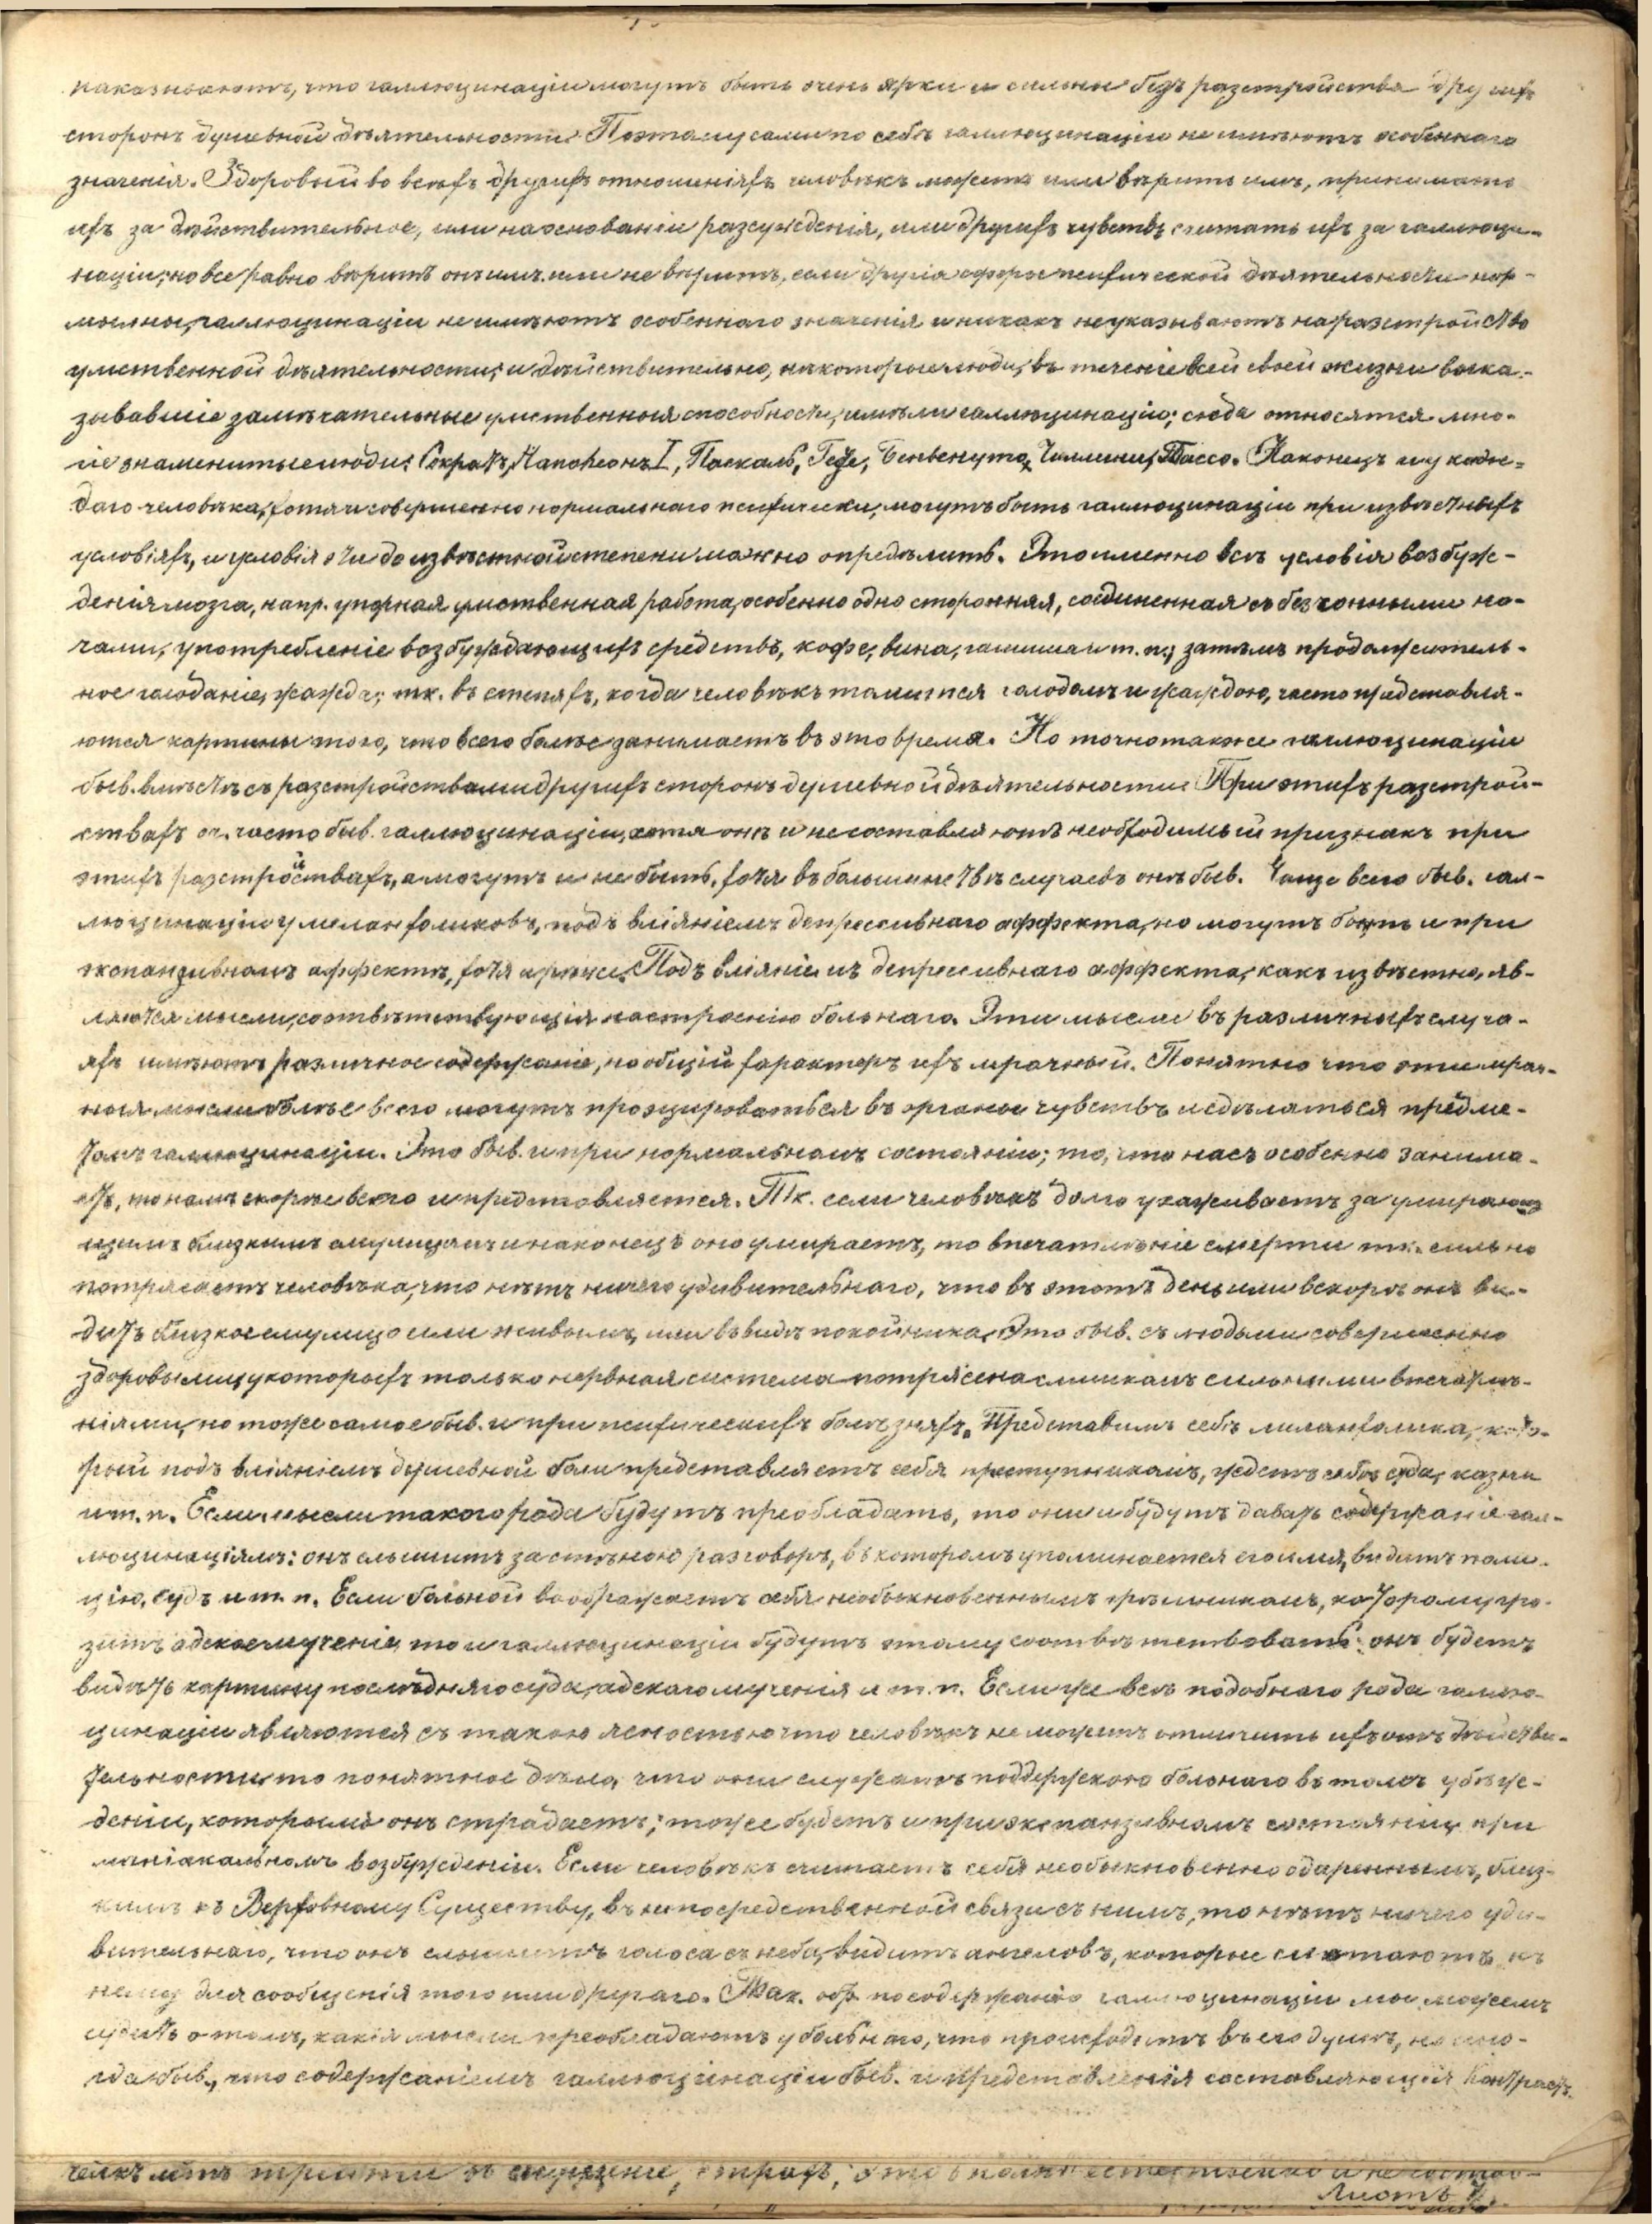 показываютъ, что галлюцинаціи могутъ быть очень ярки и сильны безъ разстройства другихъ
сторонъ душевной дѣятельности. Поэтому сами по себѣ галлюцинаціи не имѣютъ особеннаго
значенія. Здоровый во всѣхъ другихъ отношеніяхъ человѣкъ можетъ или вѣрить имъ, принимать
ихъ за дѣйствительное, или на основаніи разсужденія, или другихъ чувствъ считать ихъ за галлюци-
націи; но все равно вѣритъ онъ имъ или не вѣритъ, если другія сферы психической дѣятельности нор-
мальны, галлюцинаціи не имѣютъ особеннаго значенія и никакъ не указываютъ на разстройство
умственной дѣятельности; и дѣйствительно, нѣкоторые люди, въ теченіе всей своей жизни выка-
зывавшіе замѣчательные умственныя способности, имѣли галлюцинаціи; сюда относятся мно-
гіе знаменитые люди: Сократъ, Наполеонъ I, Паскаль, Гете, Бенвенуто Челлини, Тассо. Наконецъ и у каж-
даго человѣка, хотя и совершенно нормальнаго психически, могутъ быть галлюцинаціи при извѣстныхъ
условіяхъ, и условія эти до извѣстной степени можно опредѣлить. Это именно всѣ условія возбуж-
денія мозга, напр. упорная умственная работа, особенно одно сторонняя, соединенная съ безсонными но-
чами, употребленіе возбуждающихъ средствъ, кофе, вина, гашиша и т. п.; затѣмъ продолжитель-
ное голоданіе, жажда; тк. въ степяхъ, когда человѣкъ томится голодомъ и жаждою, часто представля-
ются картины того, что всего болѣе занимаетъ въ это время. Но точно также галлюцинаціи
быв. вмѣстѣ съ разстройствами другихъ сторонъ душевной дѣятельности. При этихъ разстрой-
ствахъ оч. часто быв. галлюцинаціи, хотя онѣ и не составляютъ необходимый признакъ при
этихъ разстройствахъ, а могутъ и не быть, хотя въ большинствѣ случаевъ онѣ быв. Чаще всего быв. гал-
люцинаціи у меланхоликовъ, подъ вліяніемъ депрессивнаго аффекта, но могутъ быть и при
экспанзивномъ аффектѣ, хотя и рѣже. Подъ вліяніемъ депрессивнаго аффекта, какъ извѣстно, яв-
ляются мысли, соотвѣтствующія настроенію больнаго. Эти мысли въ различныхъ случа-
яхъ имѣютъ различное содержаніе, но общій характеръ ихъ мрачный. Понятно что эти мрач-
ныя мысли болѣе всего могутъ проэцироваться въ органы чувствъ и сдѣлаться предме-
томъ галлюцинаціи. Это быв. и при нормальномъ состояніи; то, что насъ особенно занима-
етъ, то намъ скорѣе всего и представляется. Тк. если человѣкъ долго ухаживаетъ за умираю-
щимъ близкимъ ему лицомъ и наконецъ оно умираетъ, то впечатлѣніе смерти тк. сильно
потрясаетъ человѣка, что нѣтъ ничего удивительнаго, что въ этотъ день или вскорѣ онъ ви-
дитъ близкое ему лицо или живымъ, или въ видѣ покойника. Это быв. съ людьми совершенно
здоровыми, у которыхъ только нервная система потрясена слишкомъ сильными впечатлѣ-
ніями, но тоже самое быв. и при психическихъ болѣзняхъ. Представимъ себѣ меланхолика, кото-
рый подъ вліяніемъ душевной боли представляетъ себя преступникомъ, ждетъ себѣ суда, казни
и т. п. Если мысли такого рода будутъ преобладать, то они и будутъ давать содержаніе гал-
люцинаціямъ: онъ слышитъ за стѣною разговоръ, въ которомъ упоминается его имя, видитъ поли-
цію, судъ и т. п. Если больной воображаетъ себя необыкновеннымъ грѣшникомъ, которому гро-
зитъ адское мученіе, то и галлюцинаціи будутъ этому соотвѣтствовать: онъ будетъ
видѣть картину послѣдняго суда, адскаго мученія и т. п. Если же всѣ подобнаго рода галлю-
цинаціи являются съ такою ясностью что человѣкъ не можетъ отличить ихъ отъ дѣйстви-
тельности, то понятное дѣло, что они служатъ поддержкою больнаго въ томъ убѣж-
деніи, которымъ онъ страдаетъ; тоже будетъ и при экспанзивномъ состояніи, при
маніакальномъ возбужденіи. Если человѣкъ считаетъ себя необыкновенно одареннымъ, близ-
кимъ къ Верховному Существу, въ непосредственной связи съ нимъ, то нѣтъ ничего уди-
вительнаго, что онъ слышитъ голоса съ неба, видитъ ангеловъ, которые слетаютъ къ
нему для сообщенія того или другаго. Так. обр. по содержанію галлюцинаціи мы можемъ
судить о томъ, какія мысли преобладаютъ у больнаго, что происходитъ въ его душѣ, но ино-
гда быв., что содержаніемъ галлюцинаціи быв. и представленія составляющія контрастъ
Листъ